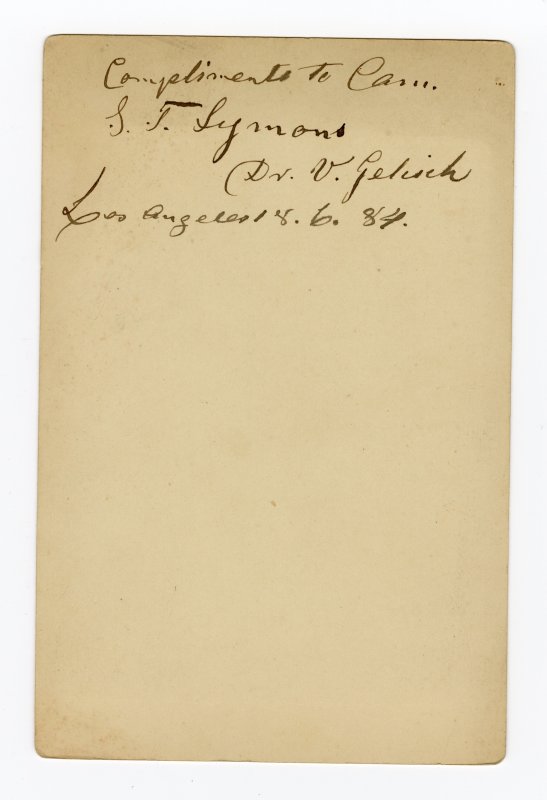 Compliments to Cam.
S. T. Symons
Dr. V. Gelcich
Los Angeles 18. 6. 84.